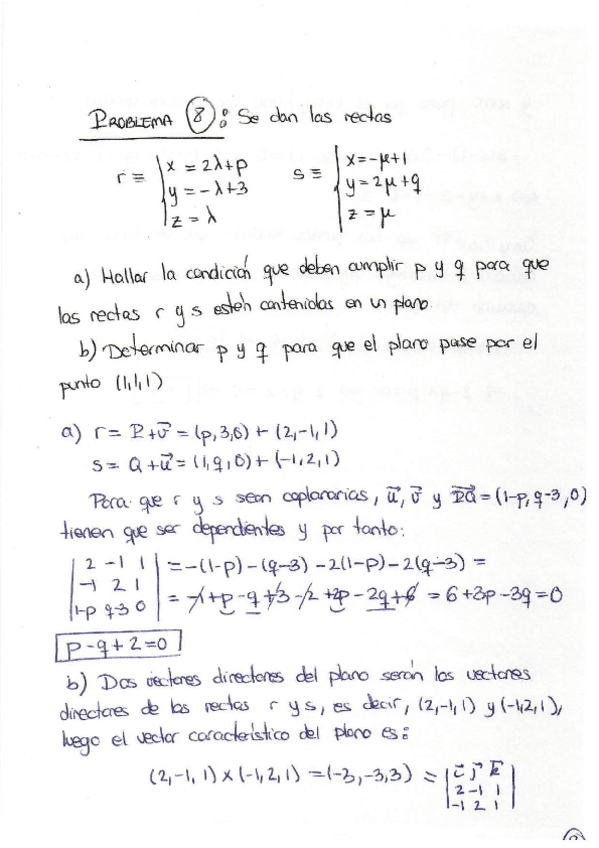 PROBLEMA 8: Se dan las rectas
r ≡ { x = 2λ+p  s ≡ { x=-μ+1
y = -λ+3  y = 2μ+q
z = λ  z = μ
a) Hallar la condición que deben cumplir p y q para que
las rectas r y s estén contenidas en un plano
b) Determinar p y q para que el plano pase por el
punto (1,1,1)
a) r = P+v⃗ = (p,3,0) + (2,-1,1)
s = Q+u⃗ = (1,q,0)+(-1,2,1)
Para que r y s sean coplanarias, u⃗, v⃗ y PQ⃗ = (1-p, q-3, 0)
tienen que ser dependientes y por tanto:
| 2 -1 1 | = -(1-p) - (q-3) - 2(1-p) - 2(q-3) =
| -1 2 1 |
| 1-p q-3 0 | = -1+p-q+3-2+2p-2q+6 = 6+3p-3q=0
p-q+2=0
b) Dos vectores directores del plano serán los vectores
directores de las rectas r y s, es decir, (2,-1,1) y (-1,2,1),
luego el vector característico del plano es:
(2,-1,1) x (-1,2,1) = (-3,-3,3) = | i⃗ j⃗ k⃗ |
| 2 -1 1 |
| -1 2 1 |